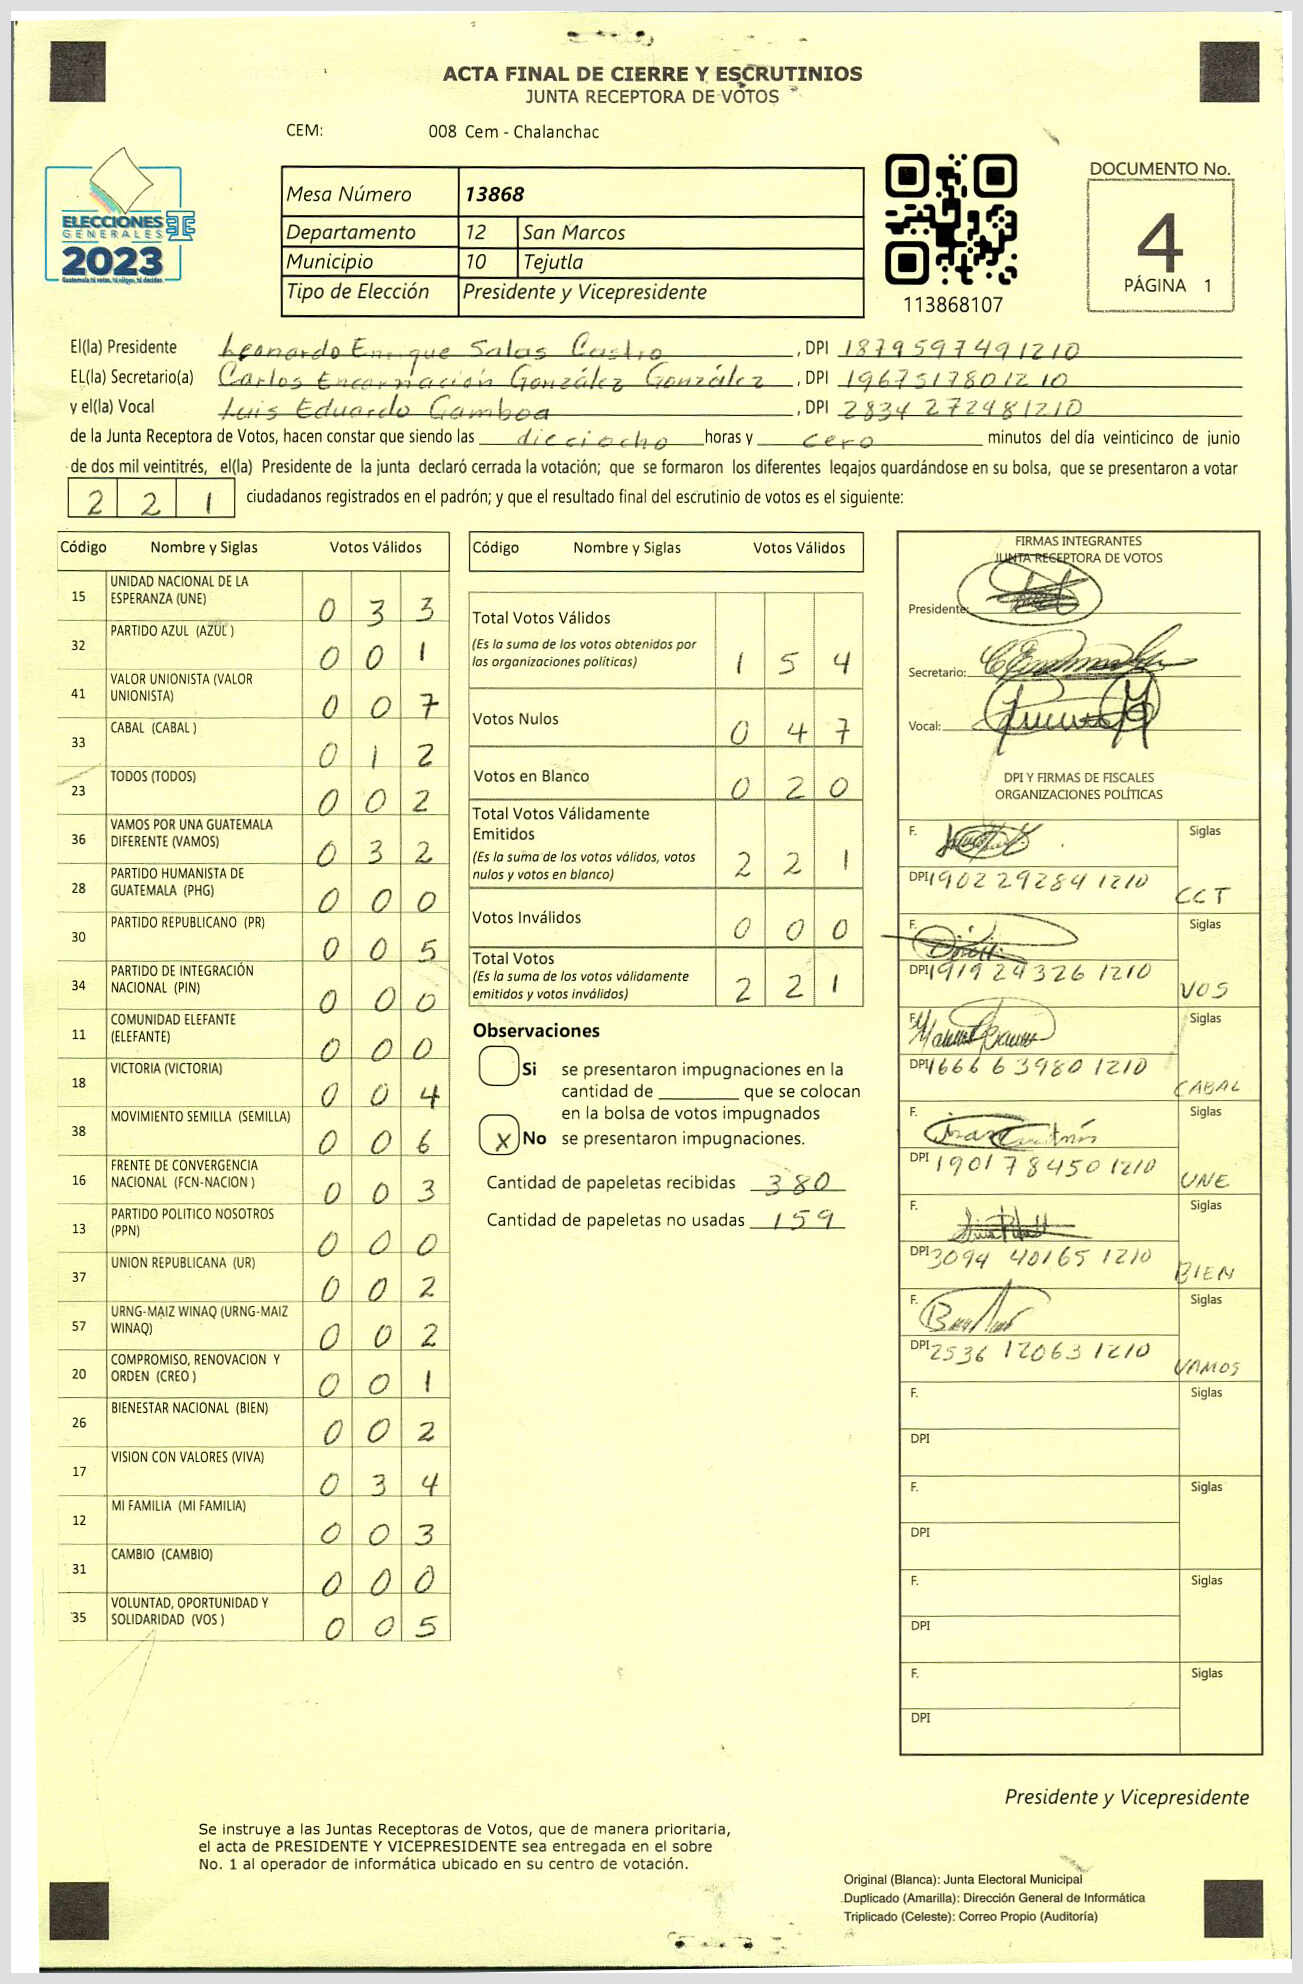 ACTA FINAL DE CIERRE Y ESCRUTINIOS
JUNTA RECEPTORA DE VOTOS
CEM: 008 Cem - Chalanchac
ELECCIONES
GENERALES
2023
Guatemala tú votas, tú eliges, tú decides
Mesa Número 13868
Departamento 12 San Marcos
Municipio 10 Tejutla
Tipo de Elección Presidente y Vicepresidente
113868107
DOCUMENTO No.
4
PÁGINA 1
El(la) Presidente Leonardo Enrique Salas Castro, DPI 1879597491210
EL(la) Secretario(a) Carlos Encarnación González González, DPI 1967517801210
y el(la) Vocal Luis Eduardo Gamboa, DPI 2834272481210
de la Junta Receptora de Votos, hacen constar que siendo las dieciocho horas y cero minutos del día veinticinco de junio
de dos mil veintitrés, el(la) Presidente de la junta declaró cerrada la votación; que se formaron los diferentes legajos guardándose en su bolsa, que se presentaron a votar
221 ciudadanos registrados en el padrón; y que el resultado final del escrutinio de votos es el siguiente:
Código Nombre y Siglas Votos Válidos
15 UNIDAD NACIONAL DE LA
ESPERANZA (UNE) 033
32 PARTIDO AZUL (AZUL ) 001
41 VALOR UNIONISTA (VALOR
UNIONISTA) 007
33 CABAL (CABAL ) 012
23 TODOS (TODOS) 002
36 VAMOS POR UNA GUATEMALA
DIFERENTE (VAMOS) 032
28 PARTIDO HUMANISTA DE
GUATEMALA (PHG) 000
30 PARTIDO REPUBLICANO (PR) 005
34 PARTIDO DE INTEGRACIÓN
NACIONAL (PIN) 000
11 COMUNIDAD ELEFANTE
(ELEFANTE) 000
18 VICTORIA (VICTORIA) 004
38 MOVIMIENTO SEMILLA (SEMILLA) 006
16 FRENTE DE CONVERGENCIA
NACIONAL (FCN-NACION ) 003
13 PARTIDO POLITICO NOSOTROS
(PPN) 000
37 UNION REPUBLICANA (UR) 002
57 URNG-MAIZ WINAQ (URNG-MAIZ
WINAQ) 002
20 COMPROMISO, RENOVACION Y
ORDEN (CREO ) 001
26 BIENESTAR NACIONAL (BIEN) 002
17 VISION CON VALORES (VIVA) 034
12 MI FAMILIA (MI FAMILIA) 003
31 CAMBIO (CAMBIO) 000
35 VOLUNTAD, OPORTUNIDAD Y
SOLIDARIDAD (VOS ) 005
Código Nombre y Siglas Votos Válidos
Total Votos Válidos
(Es la suma de los votos obtenidos por
las organizaciones políticas) 154
Votos Nulos 047
Votos en Blanco 020
Total Votos Válidamente
Emitidos
(Es la suma de los votos válidos, votos
nulos y votos en blanco) 221
Votos Inválidos 000
Total Votos
(Es la suma de los votos válidamente
emitidos y votos inválidos) 221
Observaciones
Si se presentaron impugnaciones en la
cantidad de ________ que se colocan
en la bolsa de votos impugnados
X No se presentaron impugnaciones.
Cantidad de papeletas recibidas 380
Cantidad de papeletas no usadas 159
FIRMAS INTEGRANTES
JUNTA RECEPTORA DE VOTOS
Presidente:
Secretario:
Vocal:
DPI Y FIRMAS DE FISCALES
ORGANIZACIONES POLÍTICAS
F. Siglas
DPI 1902292841210 CCT
F. Siglas
DPI 1919243261210 VOS
F. Siglas
DPI 1666639801210 CABAL
F. Siglas
DPI 1901784501210 UNE
F. Siglas
DPI 3094401651210 BIEN
F. Siglas
DPI 2536120631210 VAMOS
F. Siglas
DPI
F. Siglas
DPI
F. Siglas
DPI
F. Siglas
DPI
Presidente y Vicepresidente
Se instruye a las Juntas Receptoras de Votos, que de manera prioritaria,
el acta de PRESIDENTE Y VICEPRESIDENTE sea entregada en el sobre
No. 1 al operador de informática ubicado en su centro de votación.
Original (Blanca): Junta Electoral Municipal
Duplicado (Amarilla): Dirección General de Informática
Triplicado (Celeste): Correo Propio (Auditoría)